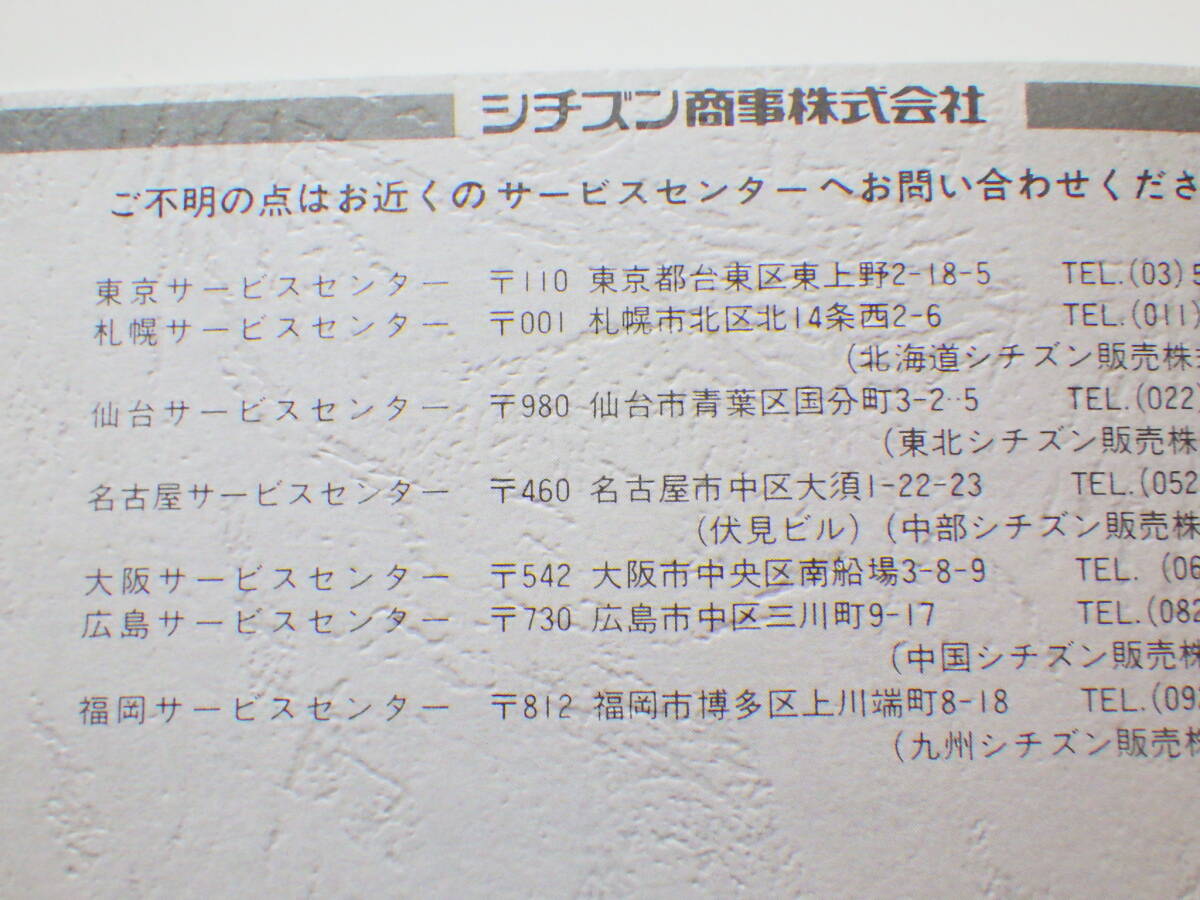 シチズン商事株式会社
ご不明の点はお近くのサービスセンターへお問い合わせくださ
東京サービスセンター 〒110 東京都台東区東上野2-18-5 TEL.(03)5
札幌サービスセンター 〒001 札幌市北区北14条西2-6 TEL.(011)
(北海道シチズン販売株式
仙台サービスセンター 〒980 仙台市青葉区国分町3-2-5 TEL.(022
(東北シチズン販売株
名古屋サービスセンター 〒460 名古屋市中区大須1-22-23 TEL.(052
(伏見ビル) (中部シチズン販売株
大阪サービスセンター 〒542 大阪市中央区南船場3-8-9 TEL. (06
広島サービスセンター 〒730 広島市中区三川町9-17 TEL.(082
(中国シチズン販売株
福岡サービスセンター 〒812 福岡市博多区上川端町8-18 TEL.(092
(九州シチズン販売株